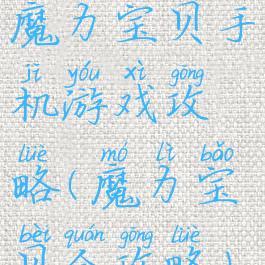 魔力宝贝手
jī yóu xì gōng
机游戏攻
lüè mó lì bǎo
略(魔力宝
bèi quán gōng lüè
贝全攻略)